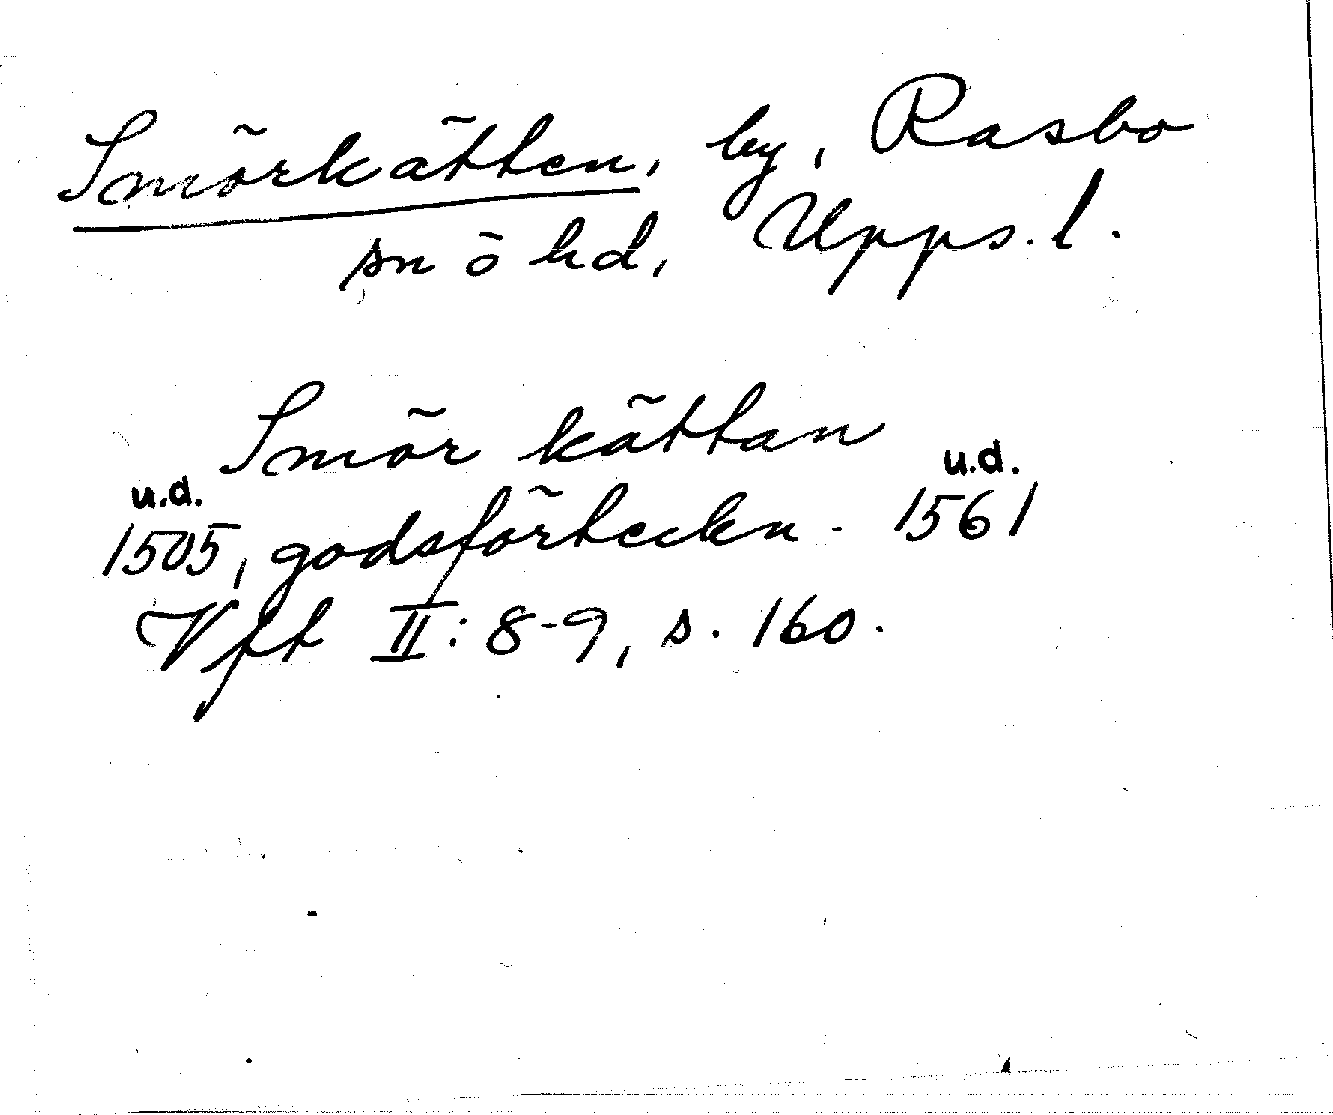 Smörkätten, by, Rasbo
sn ö hd, Upps. l.
Smör kättan
u.d. u.d.
1505, godsförteckn. 1561
Vft II: 8-9, s. 160.